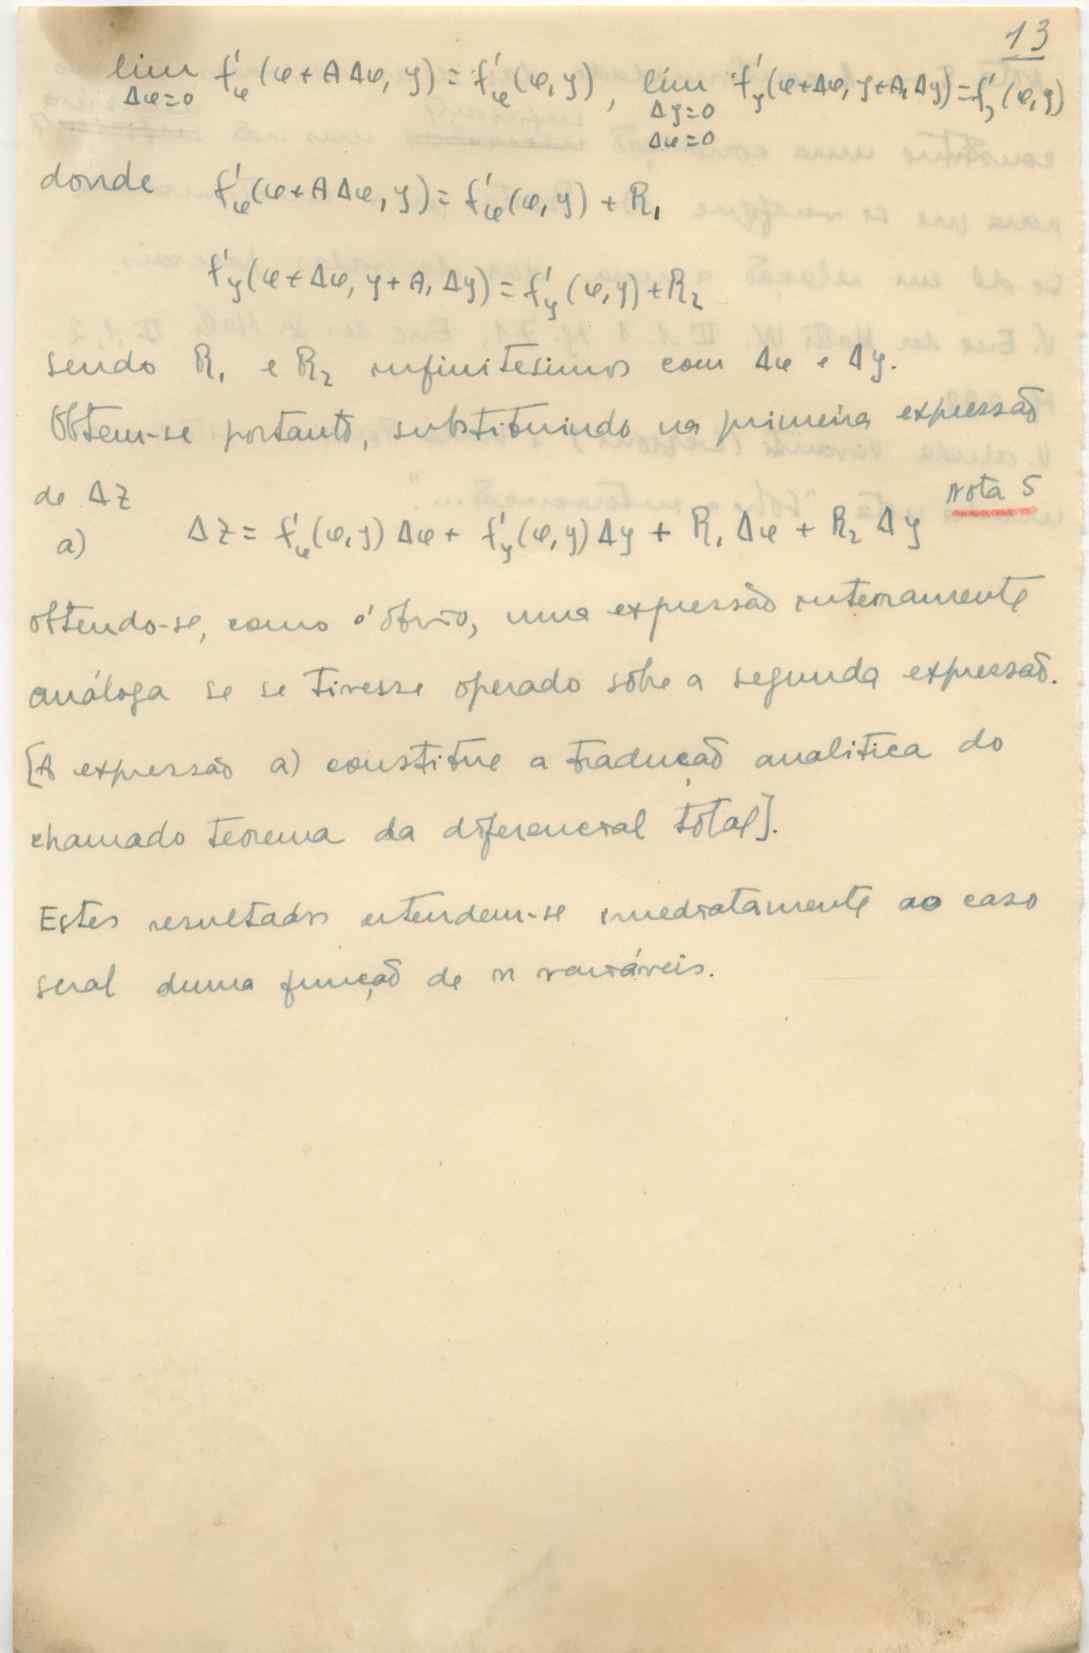 13
lim f'φ (φ+A Δφ, y) = f'φ (φ, y) , lim f'y (φ+Δφ, y+A₁Δy) = f'y (φ, y)
Δφ=0 Δy=0
Δφ=0
donde f'φ(φ+A Δφ, y) = f'φ(φ, y) + R₁
f'y(φ+Δφ, y+A₁Δy) = f'y (φ,y)+R₂
sendo R₁ e R₂ infinitesimos com Δφ e Δy.
Obtem-se portanto, substituindo na primeira expressão
de ΔZ Nota 5
a) ΔZ = f'φ(φ,y) Δφ + f'y(φ,y) Δy + R₁ Δφ + R₂ Δy
obtendo-se, como é óbvio, uma expressão inteiramente
análoga se se tivesse operado sôbre a segunda expressão.
[A expressão a) constitue a tradução analitica do
chamado teorema da diferencial total].
Estes resultados estendem-se imediatamente ao caso
geral duma função de n variáveis.